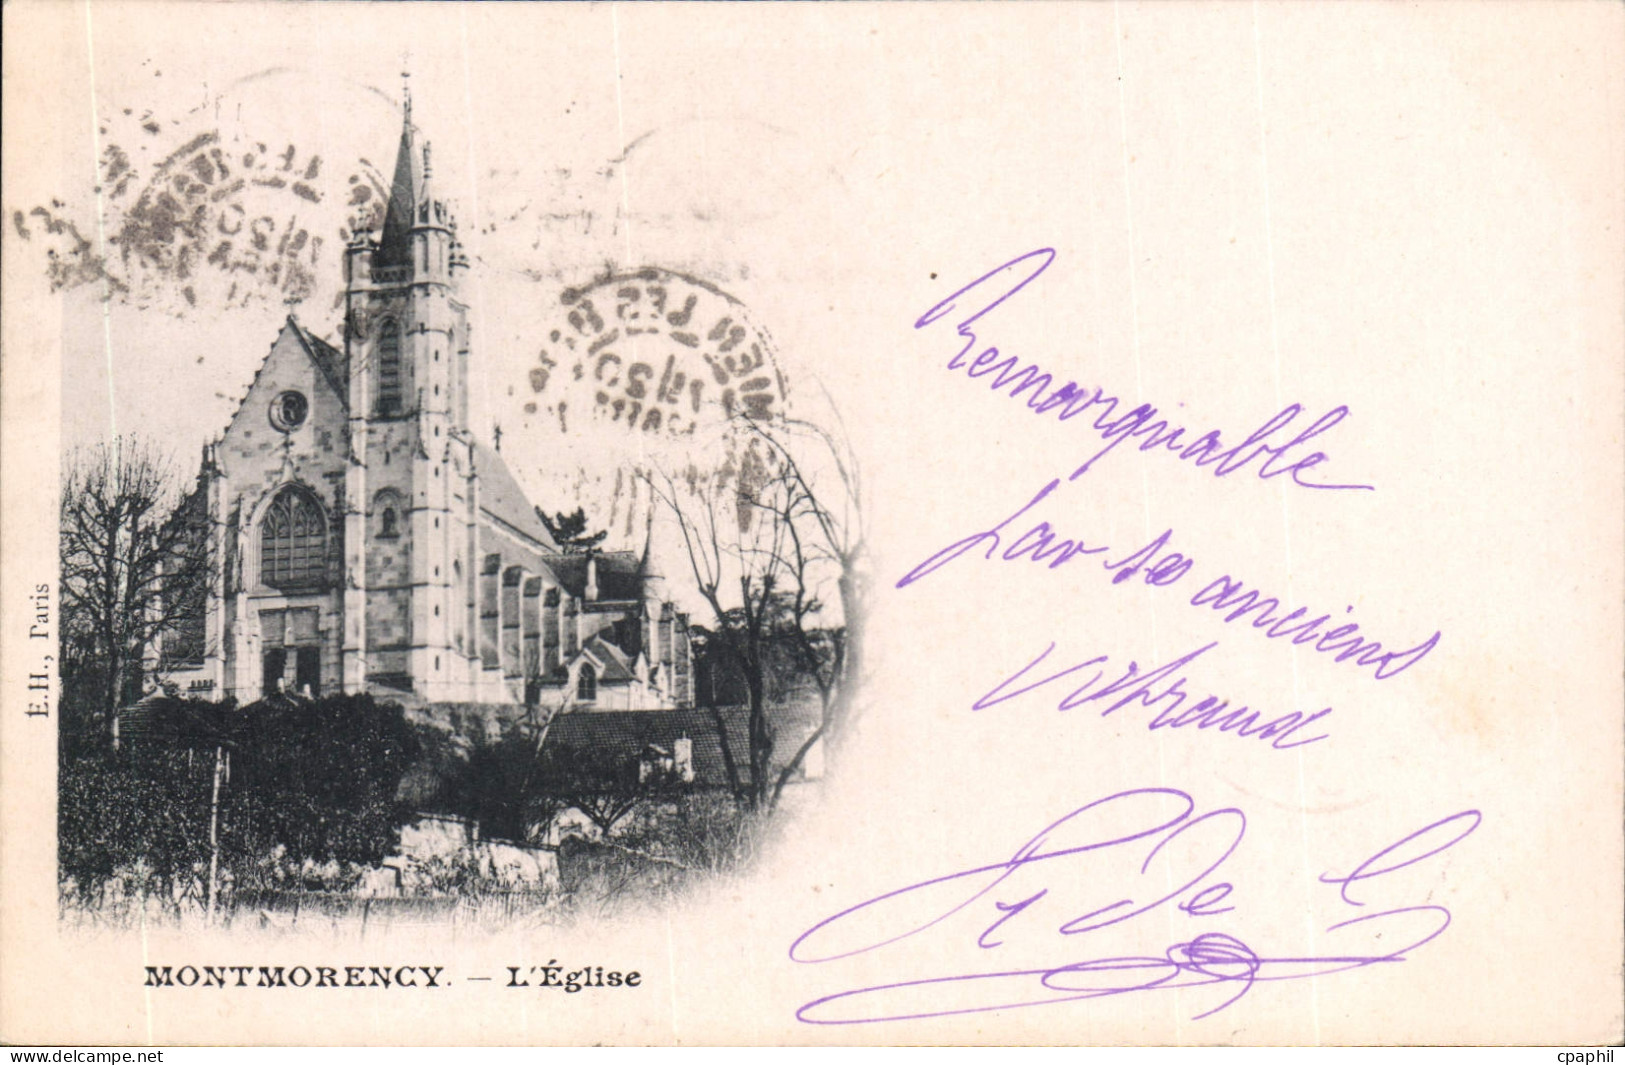 Remarquable
par ses anciens
vitraux
É.H., Paris
MONTMORENCY. — L'Église
Delcampe.net
cpaphil